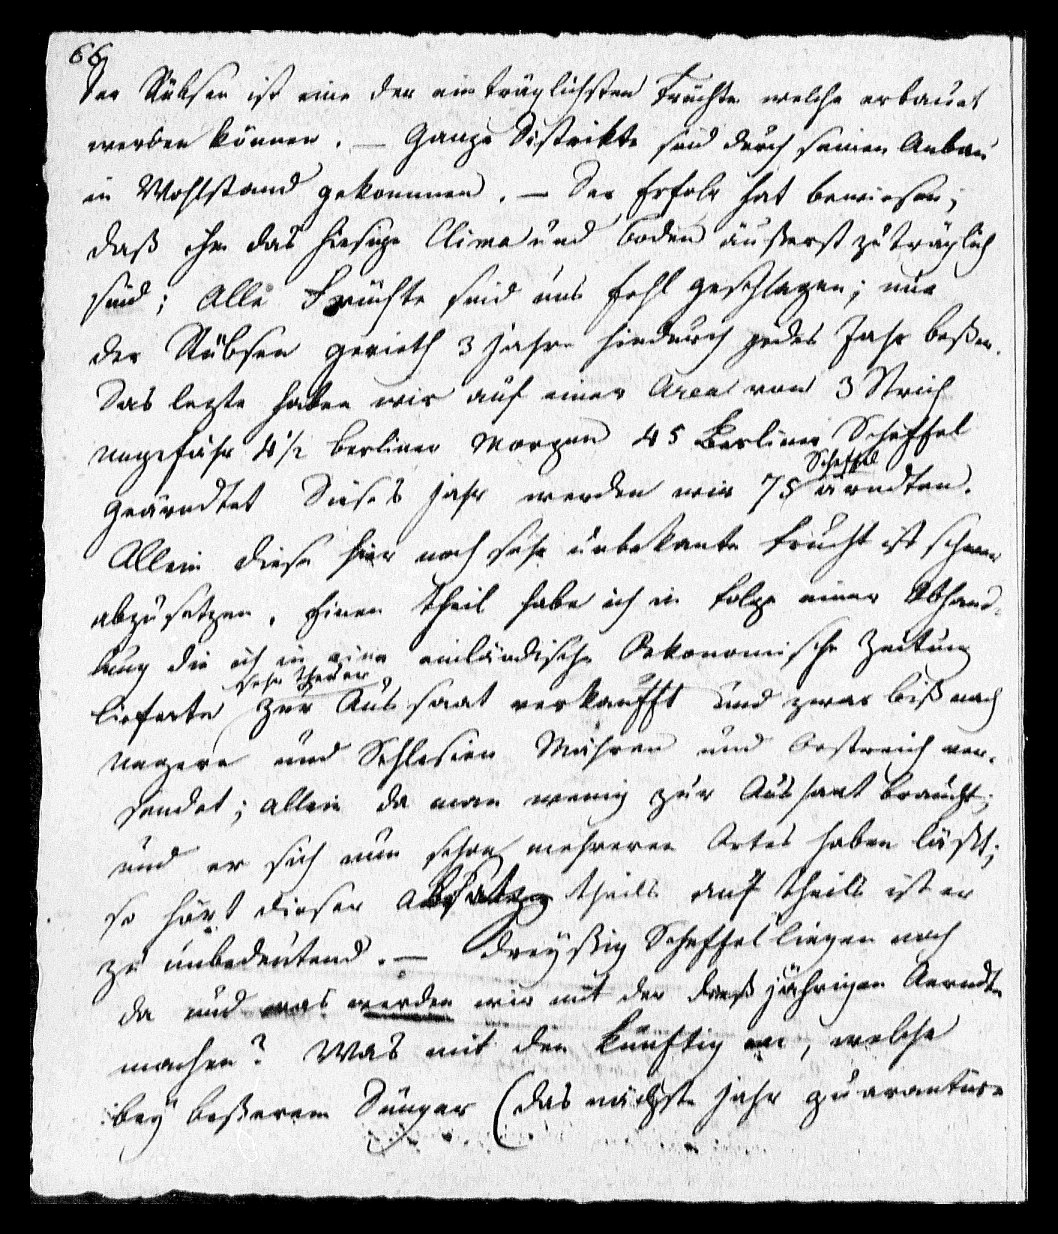 66
Der Rübsen ist eine der einträglichsten Früchte welche erbauet
werden können. — Ganze Distrikte sind durch seinen Anbau
in Wohlstand gekommen. — Der Erfolg hat bewiesen;
daß ihm das hiesige Clima und Boden äußerst zuträglich
sind; Alle Früchte sind uns fehl geschlagen; nur
der Rübsen gerieth 3 Jahre hindurch jedes Jahr beßer.
Das lezte haben wir auf einer Area von 3 Strich
ungefähr 4½ Berliner Morgen 45 Berliner Scheffel
geärndtet Dieses Jahr werden wir 75 Scheffel ärndten.
Allein diese hier noch sehr unbekante Frucht ist schwer
abzusetzen. Einen Theil habe ich in Folge einer Abhand-
lung die ich in eine einländische Oekonomische Zeitung
lieferte sehr theuer zur Aussaat verkaufft und zwar biß nach
Ungern und Schlesien Mähren und Oestreich ver-
sendet; allein da man wenig zur Aussaat braucht;
und er sich nun schon mehreren Ortes haben läßt;
so hört dieser Absatz theils auf theils ist er
zu unbedeutend. — Dreyßig Scheffel liegen noch
da und was werden wir mit der dießjährigen Aerndte
machen? Was mit den künftigen, welche
bey beßerem Dünger (das nächste Jahr